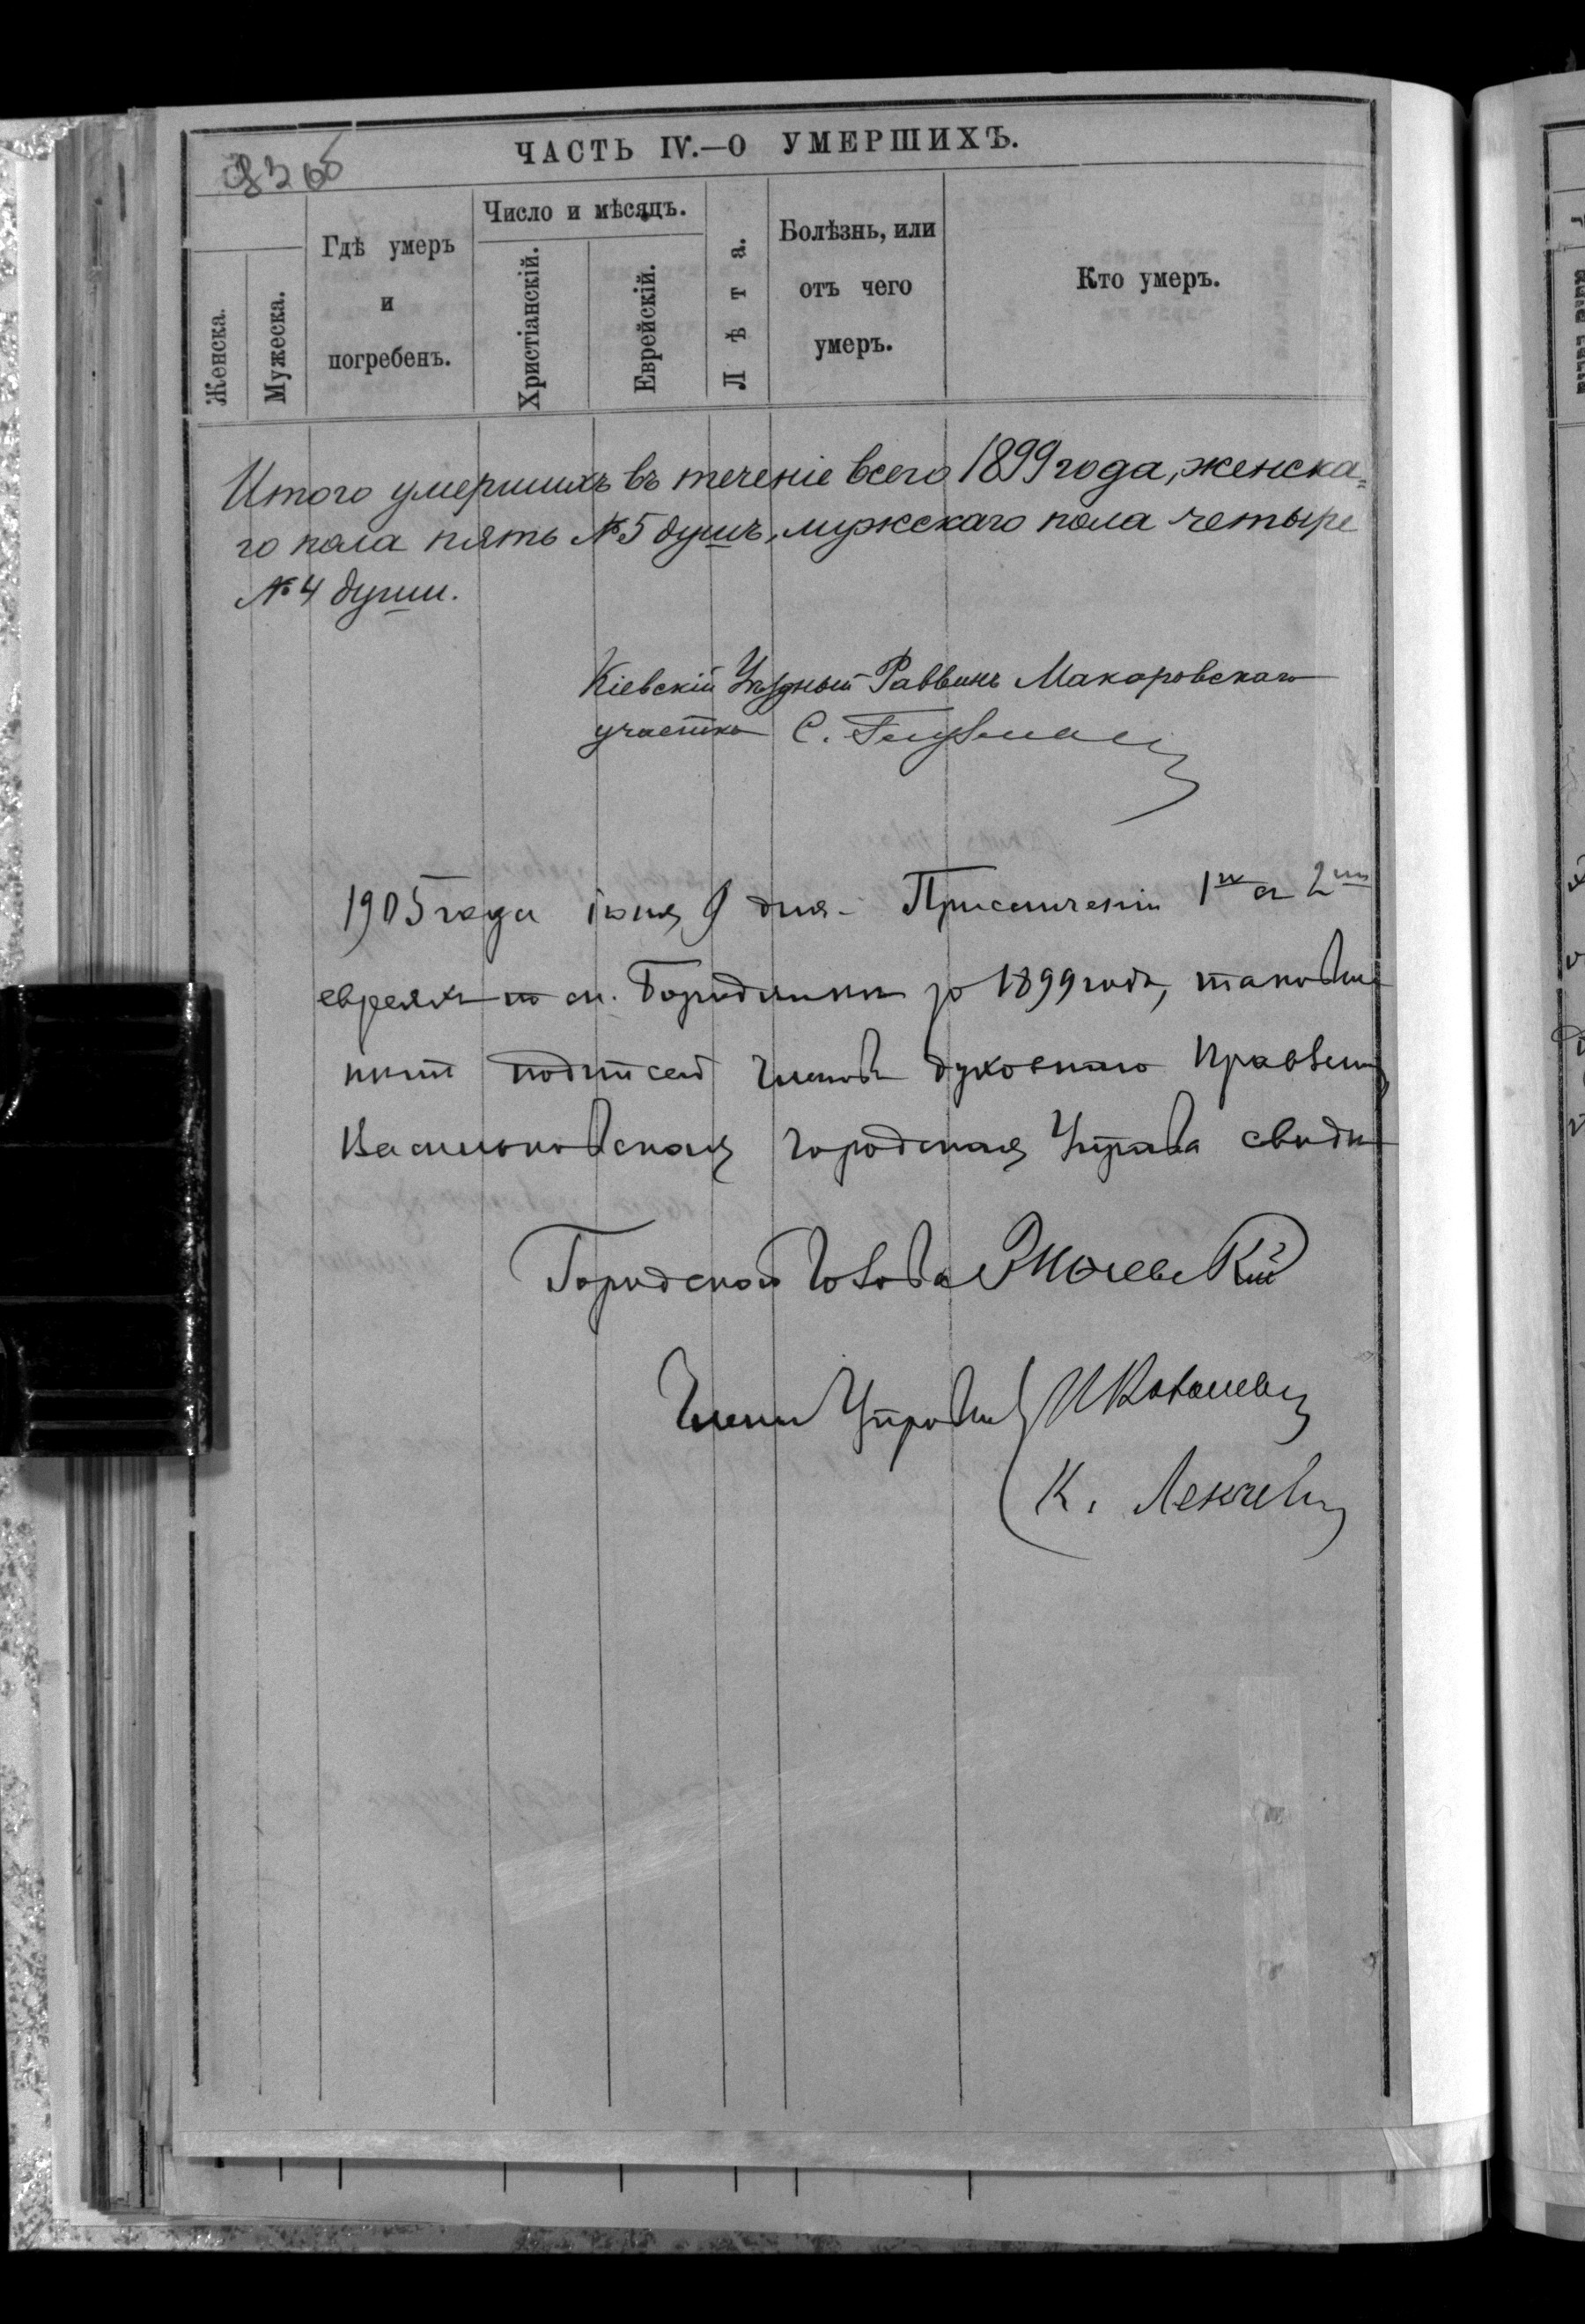 ЧАСТЬ IV.—О УМЕРШИХЪ.
Женска.
Мужеска.
Гдѣ умеръ
и
погребенъ.
Число и мѣсяцъ.
Христіанскій.
Еврейскій.
Лѣта.
Болѣзнь, или
отъ чего
умеръ.
Кто умеръ.
Итого умершихъ въ теченіе всего 1899 года, женска=
го пола пять №5 душъ, мужскаго пола четыре
№4 души.
Кіевскій Уѣздный Раввинъ Макаровскаго
участка С.
1905 года іюня 9 дня. При сличеніи 1й и 2й
евреях м. Бородянки за 1899 годъ,
подписей членовъ духовнаго Правлен
Васильковская Городская Управа свидѣ
Городской Голова
Члены Управы И Ковалевъ
К.